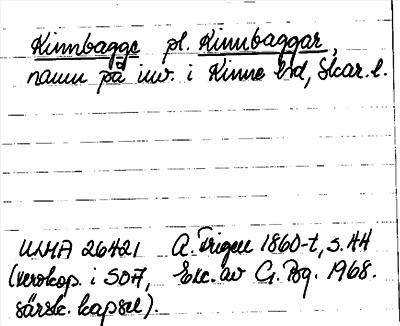 Kinnbagge pl. Kinnbaggar,
namn på inv. i Kinne hd, Skar. l.
ULMA 26421 A. Trigell 1860-t, s. 44
(xerokop. i SOA, Exc. av G. Bg. 1968.
särsk. kapsel).